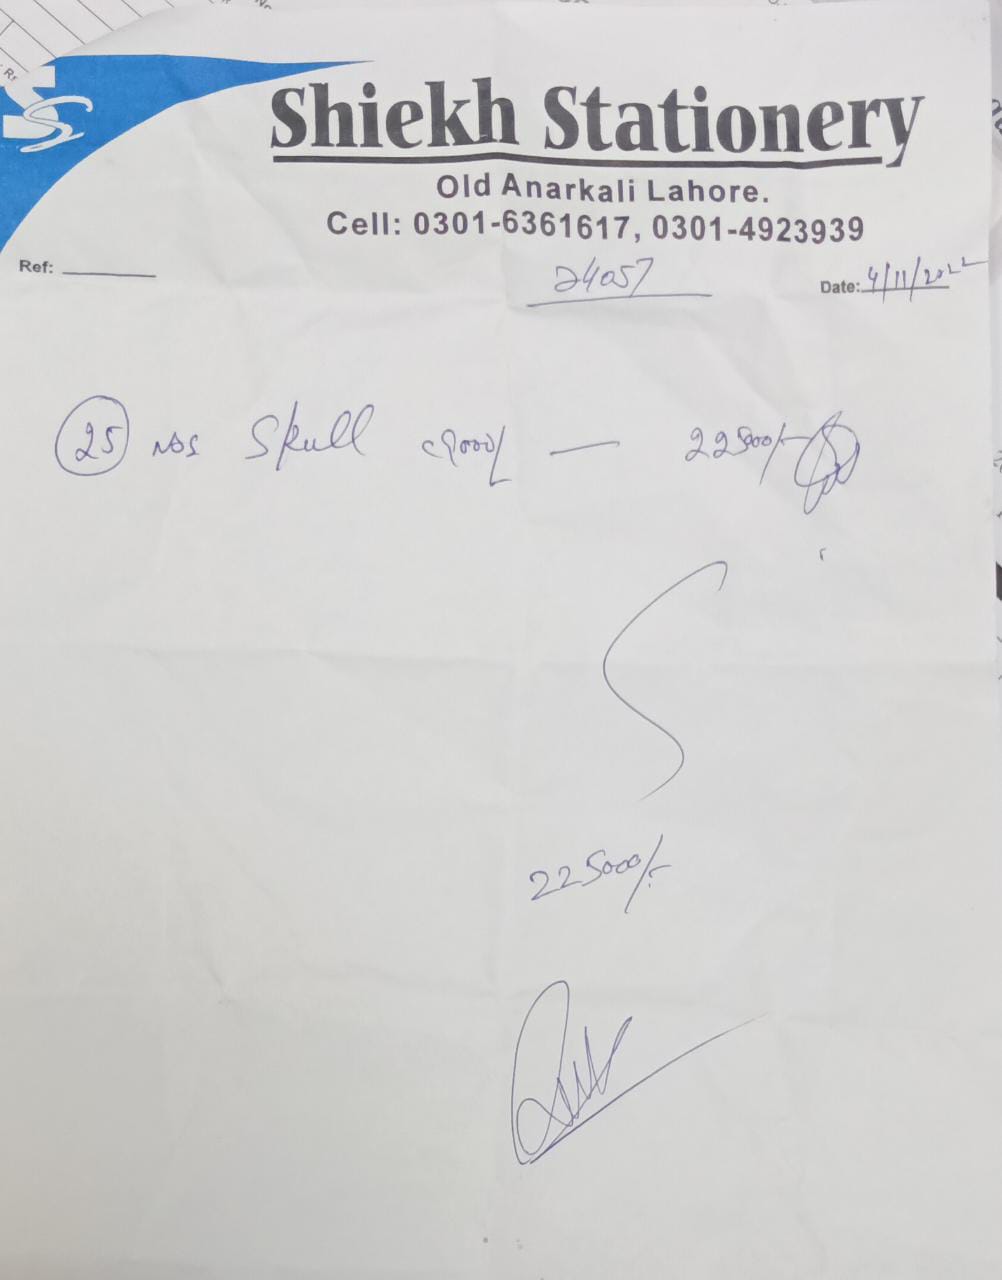 Shiekh Stationery
Old Anarkali Lahore.
Cell: 0301-6361617, 0301-4923939
Ref:
24057
Date: 4/11/2022
25 NOS Skull @9000/ — 225000/-
225000/-